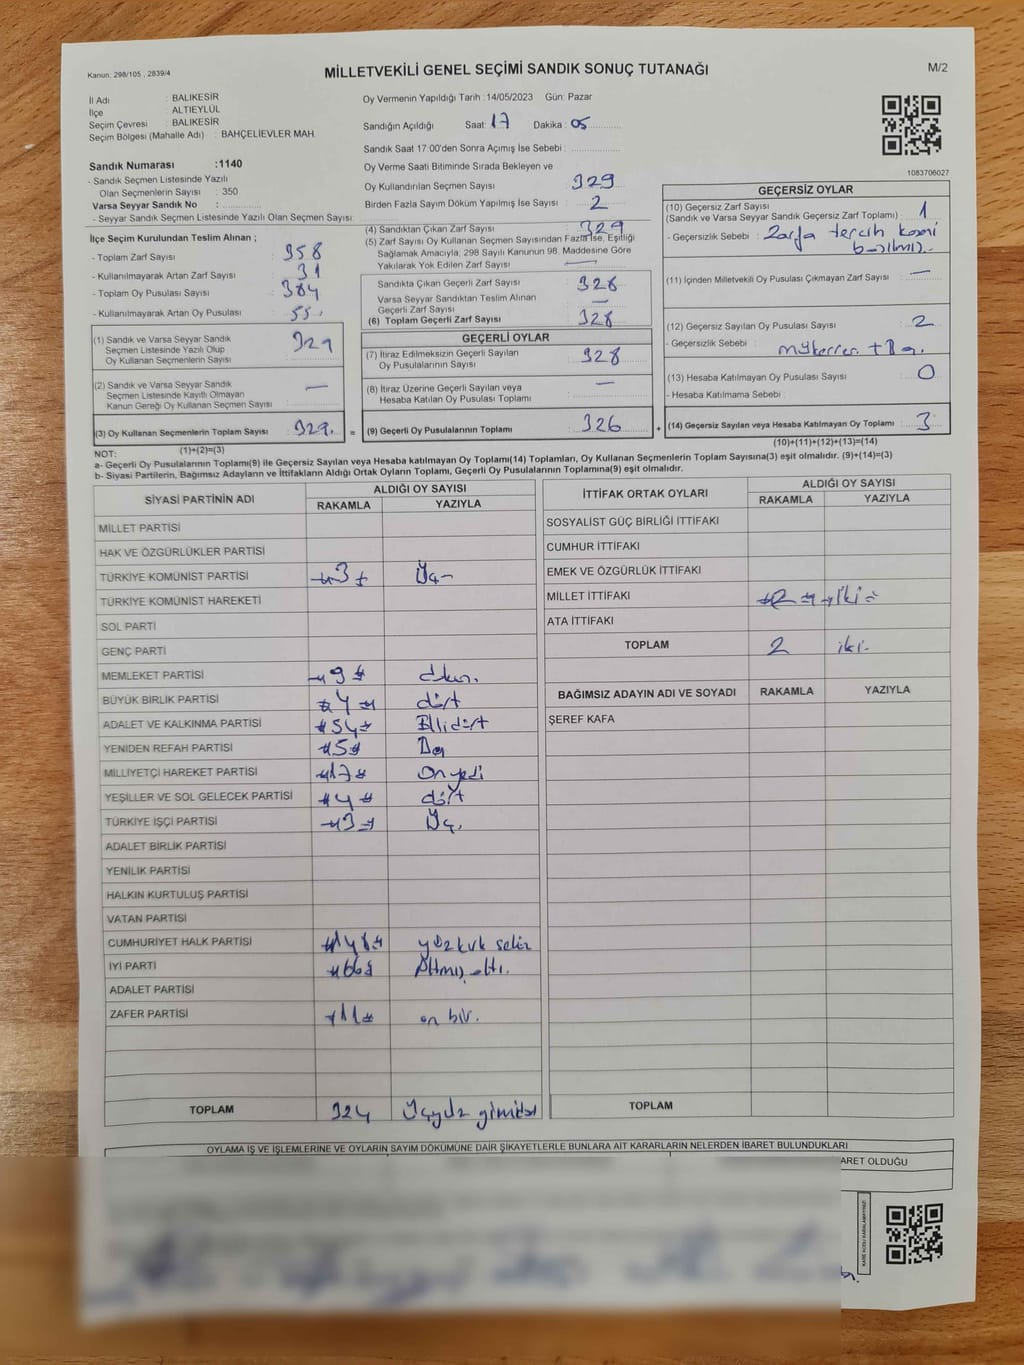 Kanun: 298/105 , 2839/4
MİLLETVEKİLİ GENEL SEÇİMİ SANDIK SONUÇ TUTANAĞI
M/2
İl Adı : BALIKESİR
İlçe : ALTIEYLÜL
Seçim Çevresi : BALIKESİR
Seçim Bölgesi (Mahalle Adı) : BAHÇELİEVLER MAH.
Sandık Numarası :1140
- Sandık Seçmen Listesinde Yazılı
Olan Seçmenlerin Sayısı : 350
Varsa Seyyar Sandık No :
- Seyyar Sandık Seçmen Listesinde Yazılı Olan Seçmen Sayısı:
Oy Vermenin Yapıldığı Tarih :14/05/2023 Gün: Pazar
Sandığın Açıldığı Saat: 17 Dakika : 05
Sandık Saat 17:00'den Sonra Açımış İse Sebebi :
Oy Verme Saati Bitiminde Sırada Bekleyen ve
Oy Kullandırılan Seçmen Sayısı : 329
Birden Fazla Sayım Döküm Yapılmış İse Sayısı : 2
(4) Sandıktan Çıkan Zarf Sayısı : 329
(5) Zarf Sayısı Oy Kullanan Seçmen Sayısından Fazla İse, Eşitliği
Sağlamak Amacıyla, 298 Sayılı Kanunun 98. Maddesine Göre
Yakılarak Yok Edilen Zarf Sayısı : —
1083706027
İlçe Seçim Kurulundan Teslim Alınan ;
- Toplam Zarf Sayısı : 358
- Kullanılmayarak Artan Zarf Sayısı : 31
- Toplam Oy Pusulası Sayısı : 384
- Kullanılmayarak Artan Oy Pusulası : 55
(1) Sandık ve Varsa Seyyar Sandık
Seçmen Listesinde Yazılı Olup
Oy Kullanan Seçmenlerin Sayısı : 329
(2) Sandık ve Varsa Seyyar Sandık
Seçmen Listesinde Kayıtlı Olmayan
Kanun Gereği Oy Kullanan Seçmen Sayısı : —
(3) Oy Kullanan Seçmenlerin Toplam Sayısı : 329
Sandıkta Çıkan Geçerli Zarf Sayısı : 328
Varsa Seyyar Sandıktan Teslim Alınan
Geçerli Zarf Sayısı : —
(6) Toplam Geçerli Zarf Sayısı : 328
GEÇERLİ OYLAR
(7) İtiraz Edilmeksizin Geçerli Sayılan
Oy Pusulalarının Sayısı : 328
(8) İtiraz Üzerine Geçerli Sayılan veya
Hesaba Katılan Oy Pusulası Toplamı : —
= (9) Geçerli Oy Pusulalarının Toplamı : 326
GEÇERSİZ OYLAR
(10) Geçersiz Zarf Sayısı
(Sandık ve Varsa Seyyar Sandık Geçersiz Zarf Toplamı) : 1
- Geçersizlik Sebebi : Zarfa tercih
(11) İçinden Milletvekili Oy Pusulası Çıkmayan Zarf Sayısı : —
(12) Geçersiz Sayılan Oy Pusulası Sayısı : 2
- Geçersizlik Sebebi :
(13) Hesaba Katılmayan Oy Pusulası Sayısı : 0
- Hesaba Katılmama Sebebi :
+ (14) Geçersiz Sayılan veya Hesaba Katılmayan Oy Toplamı : 3
NOT: (1)+(2)=(3) (10)+(11)+(12)+(13)=(14)
a- Geçerli Oy Pusulalarının Toplamı(9) ile Geçersiz Sayılan veya Hesaba katılmayan Oy Toplamı(14) Toplamları, Oy Kullanan Seçmenlerin Toplam Sayısına(3) eşit olmalıdır. (9)+(14)=(3)
b- Siyasi Partilerin, Bağımsız Adayların ve İttifakların Aldığı Ortak Oyların Toplamı, Geçerli Oy Pusulalarının Toplamına(9) eşit olmalıdır.
SİYASİ PARTİNİN ADI ALDIĞI OY SAYISI
RAKAMLA YAZIYLA
MİLLET PARTİSİ
HAK VE ÖZGÜRLÜKLER PARTİSİ
TÜRKİYE KOMÜNİST PARTİSİ 3 Üç
TÜRKİYE KOMÜNİST HAREKETİ
SOL PARTİ
GENÇ PARTİ
MEMLEKET PARTİSİ 9
BÜYÜK BİRLİK PARTİSİ 4 dört
ADALET VE KALKINMA PARTİSİ 54 Ellidört
YENİDEN REFAH PARTİSİ 5
MİLLİYETÇİ HAREKET PARTİSİ 17 Onyedi
YEŞİLLER VE SOL GELECEK PARTİSİ 4 dört
TÜRKİYE İŞÇİ PARTİSİ 3 Üç
ADALET BİRLİK PARTİSİ
YENİLİK PARTİSİ
HALKIN KURTULUŞ PARTİSİ
VATAN PARTİSİ
CUMHURİYET HALK PARTİSİ 148 yüzkırk sekiz
İYİ PARTİ 66 Altmış altı
ADALET PARTİSİ
ZAFER PARTİSİ 11 on bir.
TOPLAM 324
İTTİFAK ORTAK OYLARI ALDIĞI OY SAYISI
RAKAMLA YAZIYLA
SOSYALİST GÜÇ BİRLİĞİ İTTİFAKI
CUMHUR İTTİFAKI
EMEK VE ÖZGÜRLÜK İTTİFAKI
MİLLET İTTİFAKI 2 iki
ATA İTTİFAKI
TOPLAM 2 iki
BAĞIMSIZ ADAYIN ADI VE SOYADI RAKAMLA YAZIYLA
ŞEREF KAFA
TOPLAM
OYLAMA İŞ VE İŞLEMLERİNE VE OYLARIN SAYIM DÖKÜMÜNE DAİR ŞİKAYETLERLE BUNLARA AİT KARARLARIN NELERDEN İBARET BULUNDUKLARI
ARET OLDUĞU